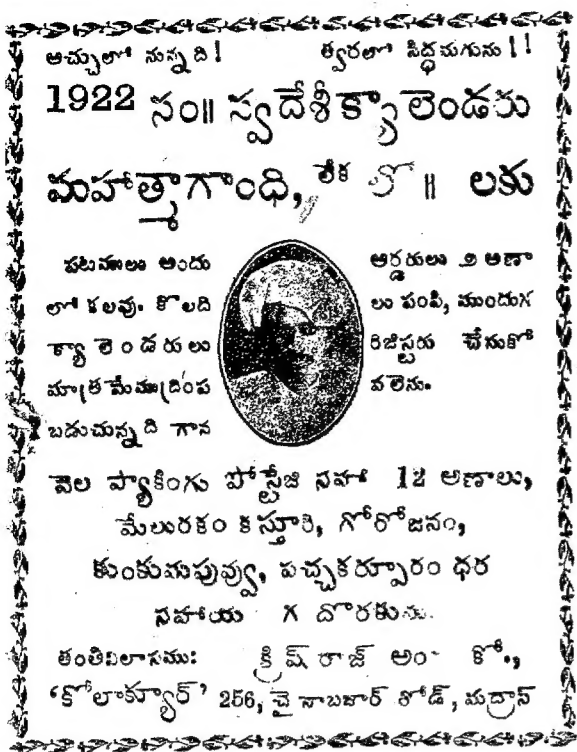 అచ్చులో నున్నది! త్వరలో సిద్ధమగును!!
1922 సం॥ స్వదేశీ క్యాలెండరు
మహాత్మాగాంధి, లేక ॥ లకు
పటములు అందు
లో కలవు. కొలది
క్యాలెండరులు
మాత్రమేముద్రింప
బడుచున్నది గాన
ఆర్డరులు ౨ అణా
లు పంపి, ముందుగ
రిజిస్టరు చేసుకో
వలెను.
వెల ప్యాకింగు పోస్టేజి సహా 12 అణాలు,
మేలురకం కస్తూరి, గోరోజనం,
కుంకుమపువ్వు, పచ్చకర్పూరం ధర
సహాయ గ దొరకును.
తంతివిలాసము: క్రిష్ రాజ్ అం కో.,
'కోలాక్యూర్' 256, చైనాబజార్ రోడ్, మద్రాస్